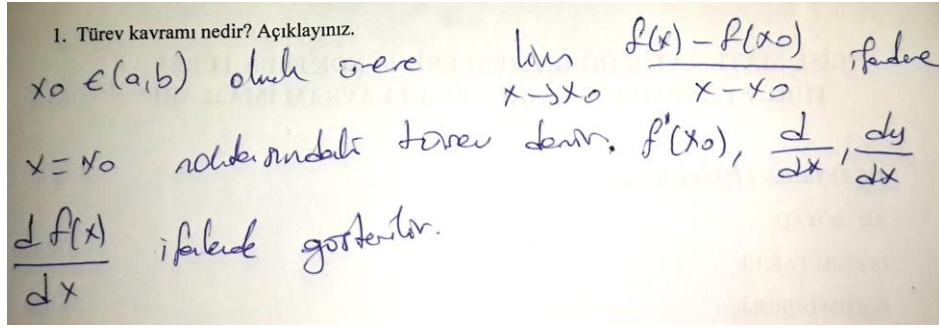 1. Türev kavramı nedir? Açıklayınız.
x0 ∈ (a,b) olmak üzere lim x→x0 f(x) - f(x0) / x - x0 ifadesine
x = x0 noktasındaki türev denir. f'(x0), d/dx, dy/dx
d f(x)/dx ifadelerle gösterilir.